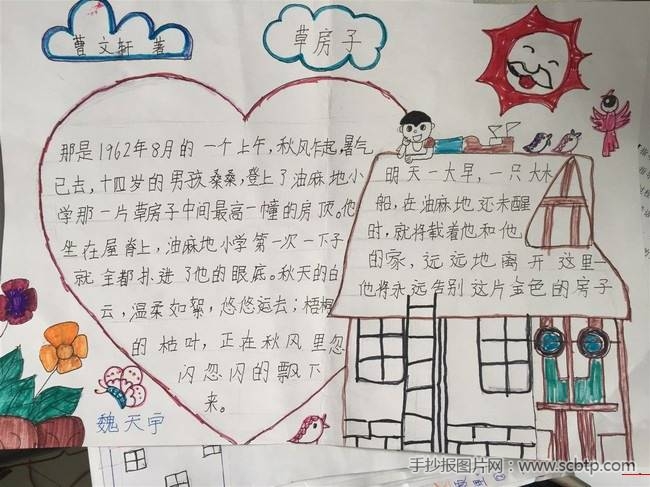 曹文轩 著
草房子
那是1962年8月的一个上午,秋风乍起,暑气
已去,十四岁的男孩桑桑,登上了油麻地小
学那一片草房子中间最高一幢的房顶。他
坐在屋脊上,油麻地小学第一次一下子
就全都扑进了他的眼底。秋天的白
云,温柔如絮,悠悠远去;梧桐
的枯叶,正在秋风里忽
闪忽闪的飘下
来。
明天一大早,一只大木
船,在油麻地还未醒
时,就将载着他和他
的家,远远地离开这里—
他将永远告别这片金色的房子
魏天宇
手抄报图片网:www.scbtp.com